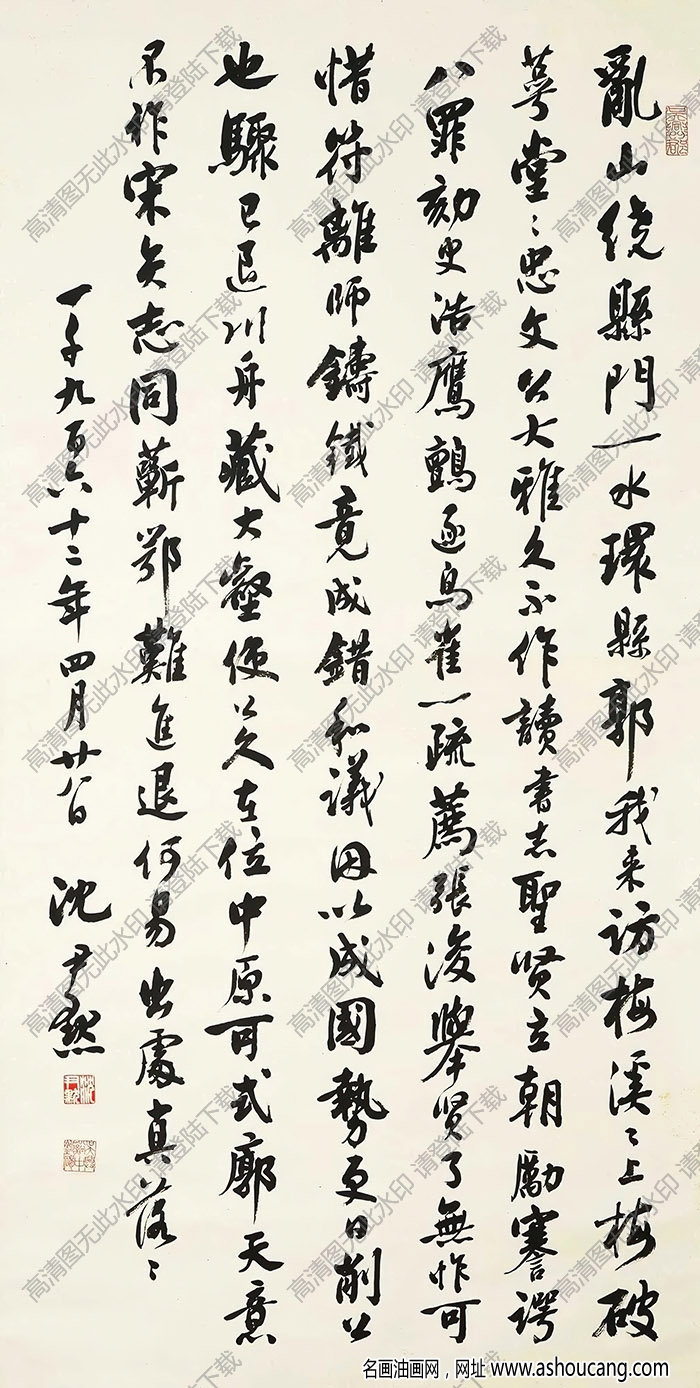 亂山绕縣門一水環縣郭我来访梅溪〻上梅破
萼堂〻忠文公大雅久不作讀書志聖贤立朝勵謇諤
八罪劾史浩鷹鸇逐鳥雀一疏薦張浚舉贤了無怍可
惜符離師鑄鐵竟成錯和議因以成國勢更日削公
也驟已退川舟藏大壑使公久在位中原可式廓天意
不祚宋矢志同蘄鄂難進退何易出處真落〻
一千九百六十二年四月廿八日 沈尹默
沈尹默
高清图无此水印 请登陆下载
名画油画网，网址 www.ashoucang.com